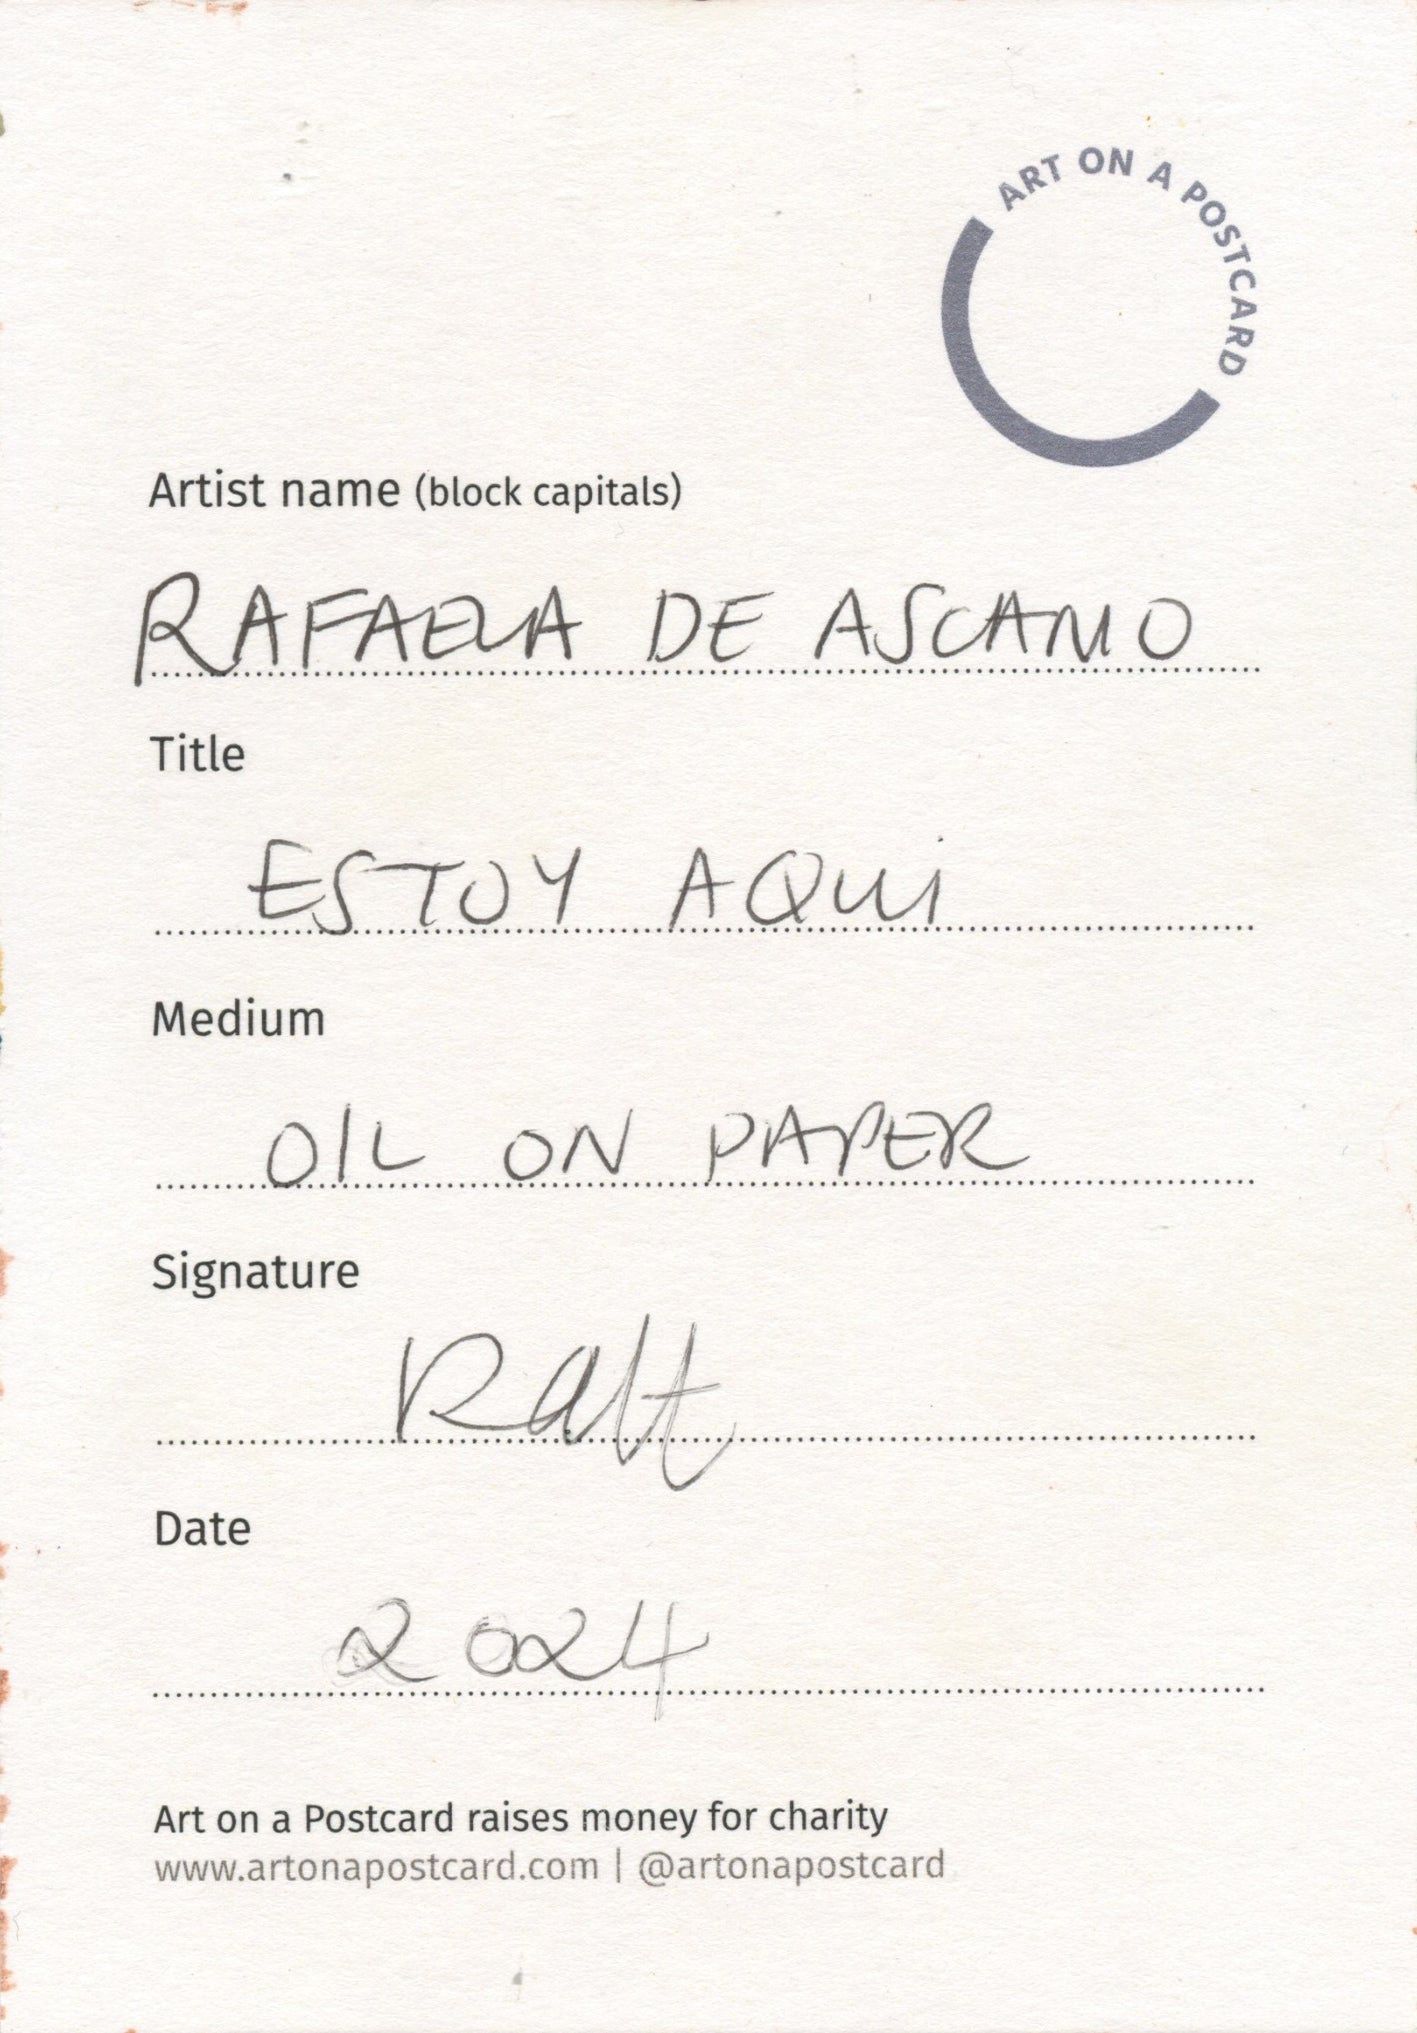 ART ON A POSTCARD
Artist name (block capitals)
RAFAELA DE ASCANIO
Title
ESTOY AQUI
Medium
OIL ON PAPER
Signature
Date
2024
Art on a Postcard raises money for charity
www.artonapostcard.com | @artonapostcard